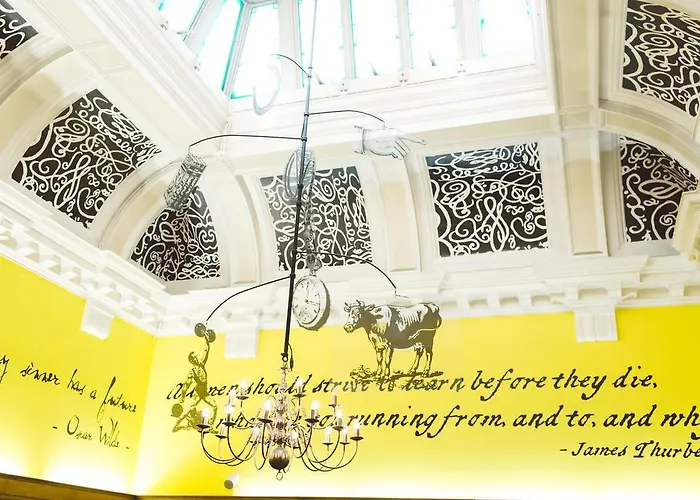 y sinner has a future
- Oscar Wilde -
All men should strive to learn before they die,
running from, and to, and wh
- James Thurbe